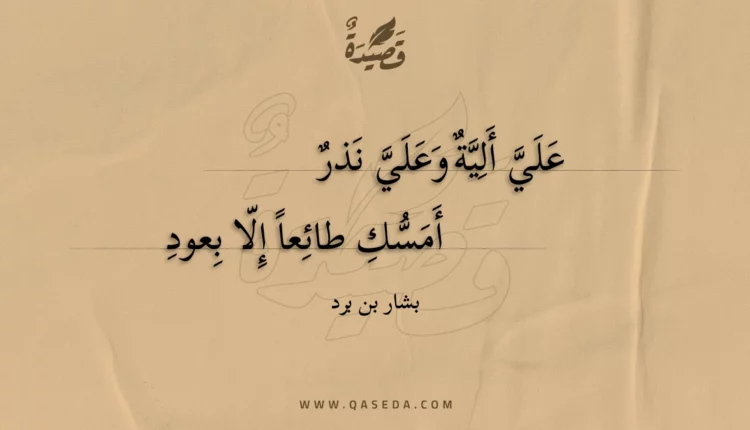 قَصِيدَةٌ
عَلَيَّ أَلِيَّةٌ وَعَلَيَّ نَذرٌ
أَمَسُّكِ طائِعاً إِلّا بِعودِ
بشار بن برد
WWW.QASEDA.COM